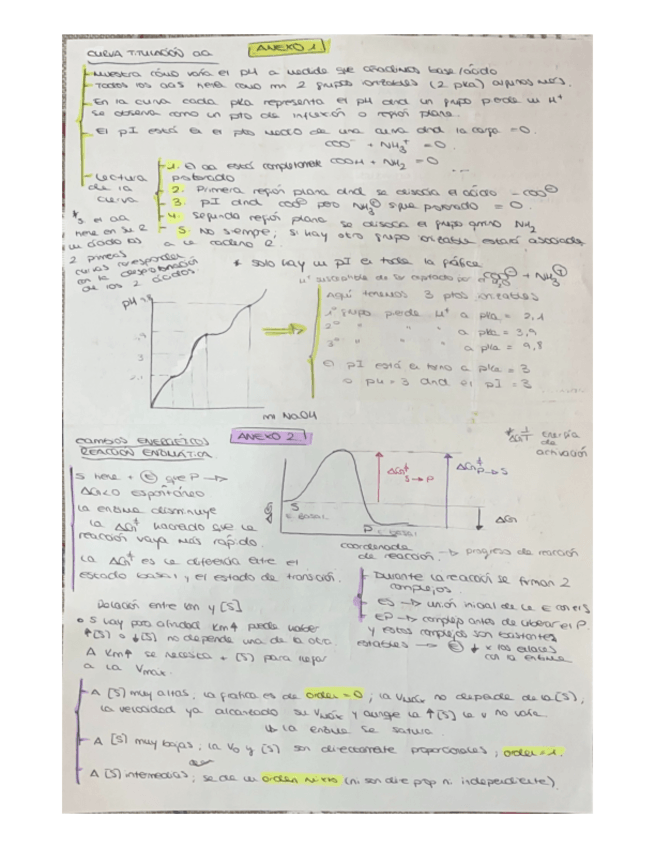 CURVA TITULACIÓN aa
ANEXO 1
Muestra cómo varía el pH a medida que añadimos base/ácido
Todos los aas tiene como mn 2 grupos ionizables (2 pKa) algunos más.
En la curva cada pKa representa el pH dnd un grupo pierde un H+
se observa como un pto de inflexión o región plana.
El pI está en el pto medio de una curva dnd la carga = 0.
COO- + NH3+ = 0.
Lectura de la curva
1. El aa está completamente COOH + NH2 = 0
protonado
2. Primera región plana dnd se disocia el ácido - COO-
3. pI dnd COO- pero NH3+ sigue protonado = 0.
4. Segunda región plana se disocia el grupo amino NH2
5. No siempre; si hay otro grupo ionizable estará asociada
a la cadena R.
* si el aa
tiene en su R
un ácido las
2 primeras
curvas corresponden
en la desprotonación
de los 2 ácidos.
* solo hay un pI en toda la gráfica
H+ susceptible de ser captado por COO- + NH3+
pH
9,8
3,9
2,1
ml NaOH
Aquí tenemos 3 ptos ionizables
1er grupo pierde H+ a pKa = 2,1
2º " " " a pKa = 3,9
3er " " " a pKa = 9,8
El pI está en torno a pKa = 3
o pH = 3 dnd el pI = 3
CAMBIOS ENERGÉTICOS
REACCIÓN ENZIMÁTICA
ANEXO 2
* ΔG‡ Energía
de
activación
S tiene + E que P →
ΔG<0 espontáneo
La enzima disminuye
la ΔG‡ haciendo que la
reacción vaya más rápido.
La ΔG‡ es la diferencia entre el
estado basal y el estado de transición.
S
E basal
P
E basal
ΔG‡ S→P
ΔG‡ P→S
ΔG
coordenada
de reacción → progreso de reacción
Durante la reacción se forman 2
complejos.
ES → unión inicial de la E con el S
EP → complejo antes de liberar el P
y estos complejos son bastantes
estables → E ↓ x los enlaces
con la enzima
Relación entre Km y [S]
Si hay poca afinidad Km↑ puede haber
↑[S] o ↓[S] no depende una de la otra.
A Km↑ se necesita + [S] para llegar
a la Vmax.
A [S] muy altas, la gráfica es de orden = 0; la Vmáx no depende de la [S],
la velocidad ya alcanzado su Vmáx y aunque la ↑[S] la v no varía.
↳ La enzima se satura.
A [S] muy bajas, la V0 y [S] son directamente proporcionales, orden = 1.
A [S] intermedias, se da un orden mixto (ni son dire prop ni independiente).